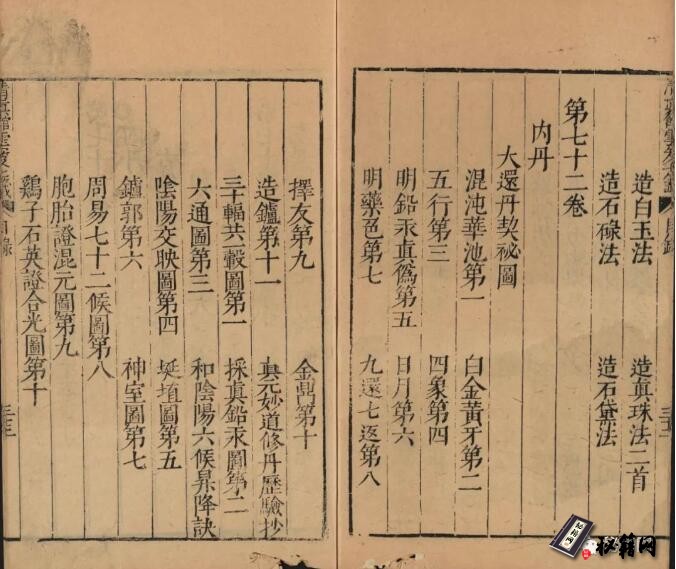 造白玉法　造眞珠法二首
造石碌法　造石黛法
第七十二卷
内丹
大還丹契祕圖
混沌華池第一　白金黃牙第二
五行第三　四象第四
明鉛汞眞僞第五　日月第六
明藥色第七　九還七返第八
擇友第九　金鼎第十
造鑪第十一　眞元妙道修丹歷驗抄
三十輻共轂圖第一　採眞鉛汞圖第二
六通圖第三　和陰陽六候昇降訣
陰陽交映圖第四　埏埴圖第五
鑪郭第六　神室圖第七
周易七十二候圖第八
胞胎證混元圖第九
鷄子石英證合光圖第十
目錄
秘籍网